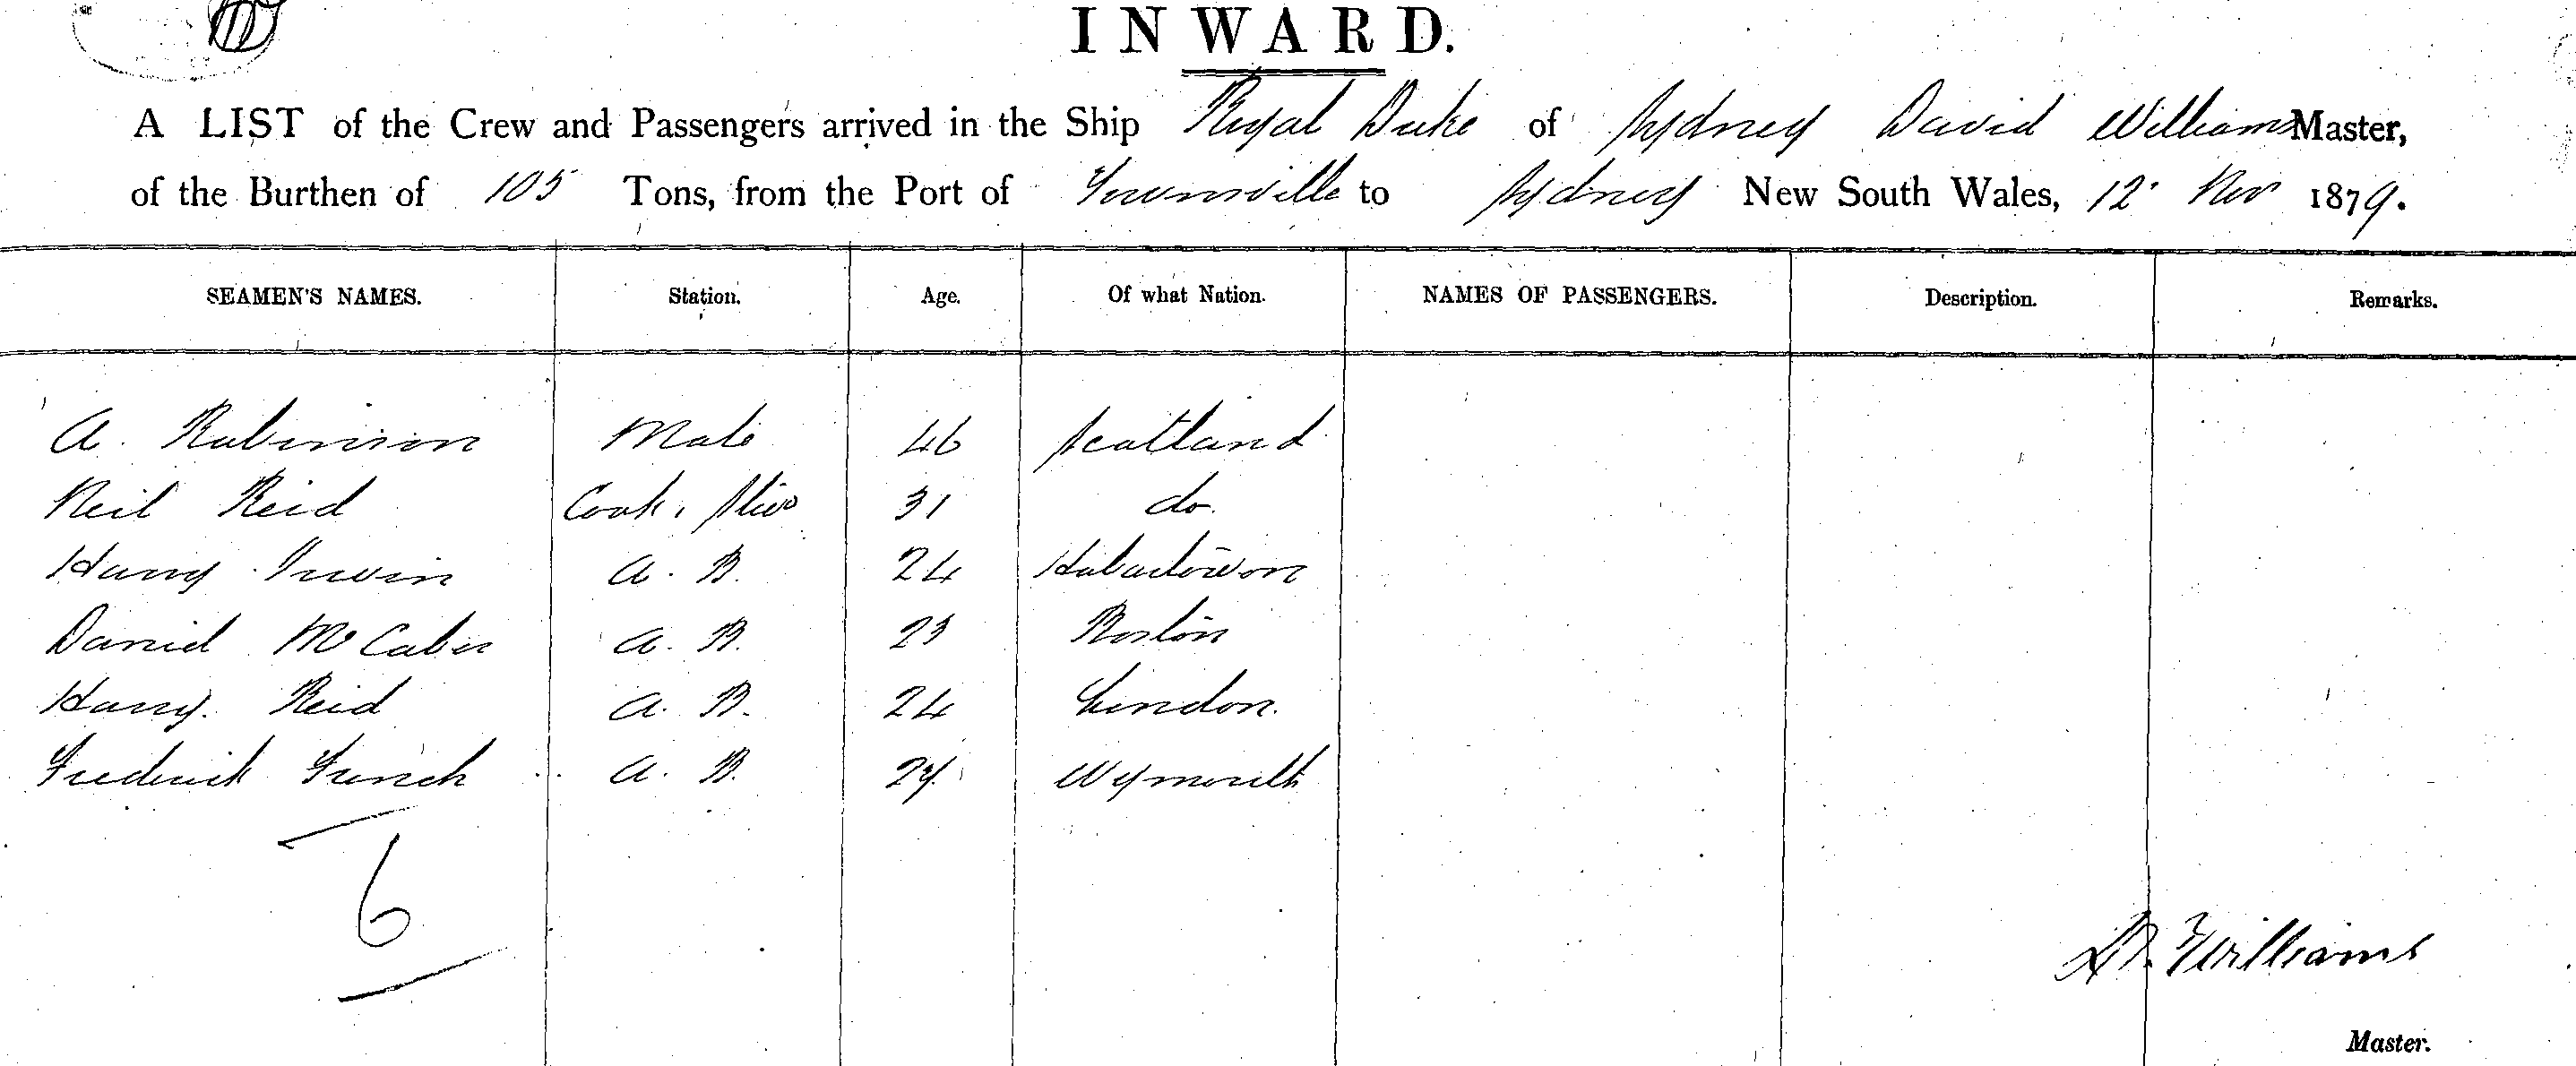 INWARD.
A LIST of the Crew and Passengers arrived in the Ship Royal Duke of Sydney David Williams Master,
of the Burthen of 105 Tons, from the Port of Townsville to Sydney New South Wales, 12 Nov 1879.
SEAMEN'S NAMES. Station. Age. Of what Nation. NAMES OF PASSENGERS. Description. Remarks.
A. Robinson Mate 46 Scotland
Neil Reid Cook. Stwo 31 do.
Harry Irwin A. B. 24 Hobartown
Daniel McCabe A. B. 23 Boston
Harry Reid A. B. 24 London.
Frederick A. B. Wymouth
6
D. Williams
Master.